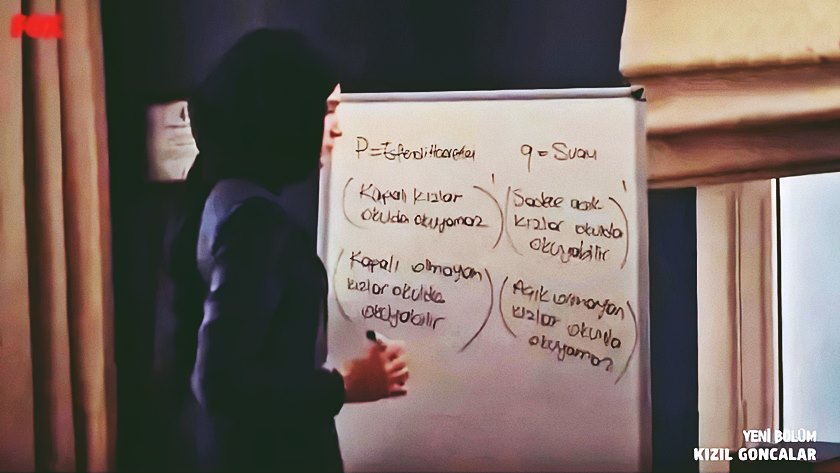 FOX
P = Efendi Hazretleri
q = Suavi
(Kapalı kızlar
okulda okuyamaz)'
(Sadece açık
kızlar okulda
okuyabilir)'
(Kapalı olmayan
kızlar okulda
okuyabilir)
(Açık olmayan
kızlar okulda
okuyamaz)
YENİ BÖLÜM
KIZIL GONCALAR